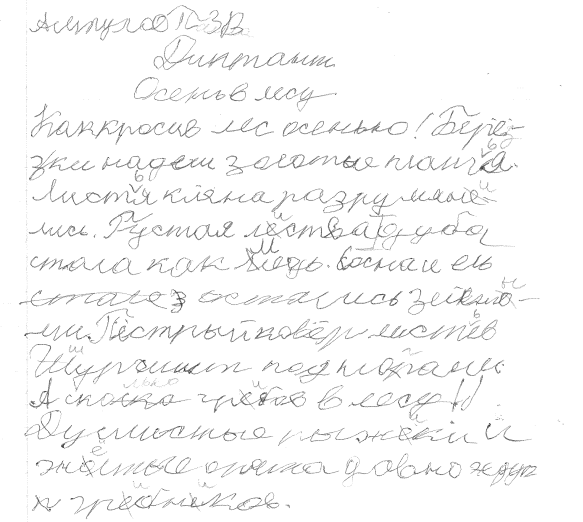 Диктант
Осень в лесу
Как кросив лес осенью! Берё-
зки надели золотые платя.
Листя клёна разрумяни-
лись. Густая листва дуба
стала как медь. Сосна и ель
стале остались зелёны-
ми. Пёстрый ковёр листев
Шуршит под ногами.
А сколько грибов в лесу!
Душистые рыжики и
жёлтые опята давно ждут
грибников.